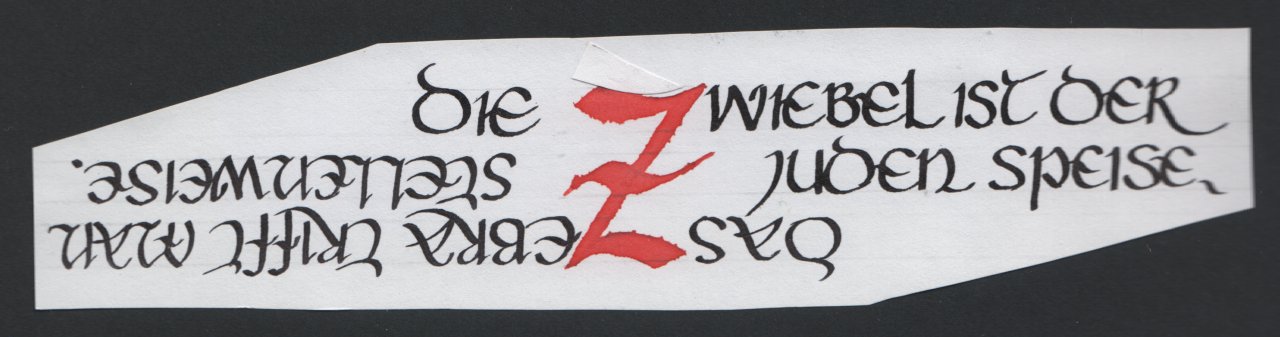 DIE ZWIEBEL IST DER
JUDEN SPEISE,
DAS ZEBRA TRIFFT MAN
STELLENWEISE.